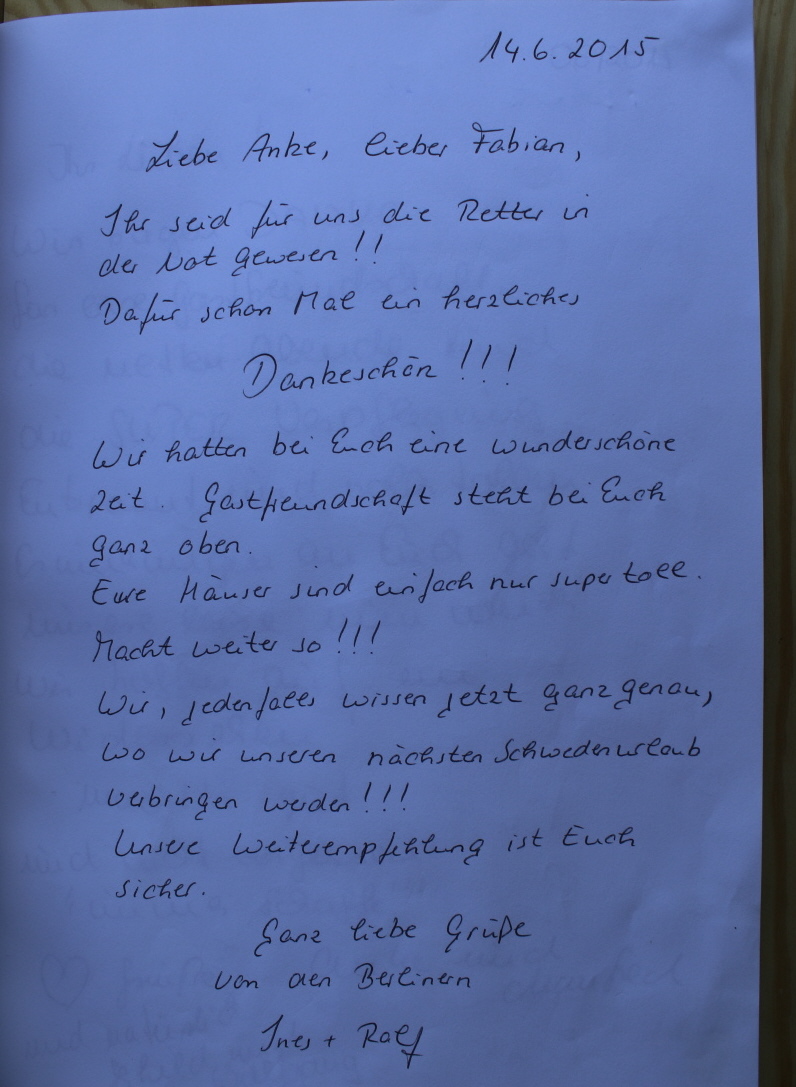 14.6.2015
Liebe Anke, lieber Fabian,
Ihr seid für uns die Retter in
der Not gewesen!!
Dafür schon Mal ein herzliches
Dankeschön!!!
Wir hatten bei Euch eine wunderschöne
Zeit. Gastfreundschaft steht bei Euch
ganz oben.
Eure Häuser sind einfach nur super toll.
Macht weiter so!!!
Wir, jedenfalls wissen jetzt ganz genau,
wo wir unseren nächsten Schwedenurlaub
verbringen werden!!!
Unsere Weiterempfehlung ist Euch
sicher.
Ganz liebe Grüße
von den Berlinern
Ines + Ralf